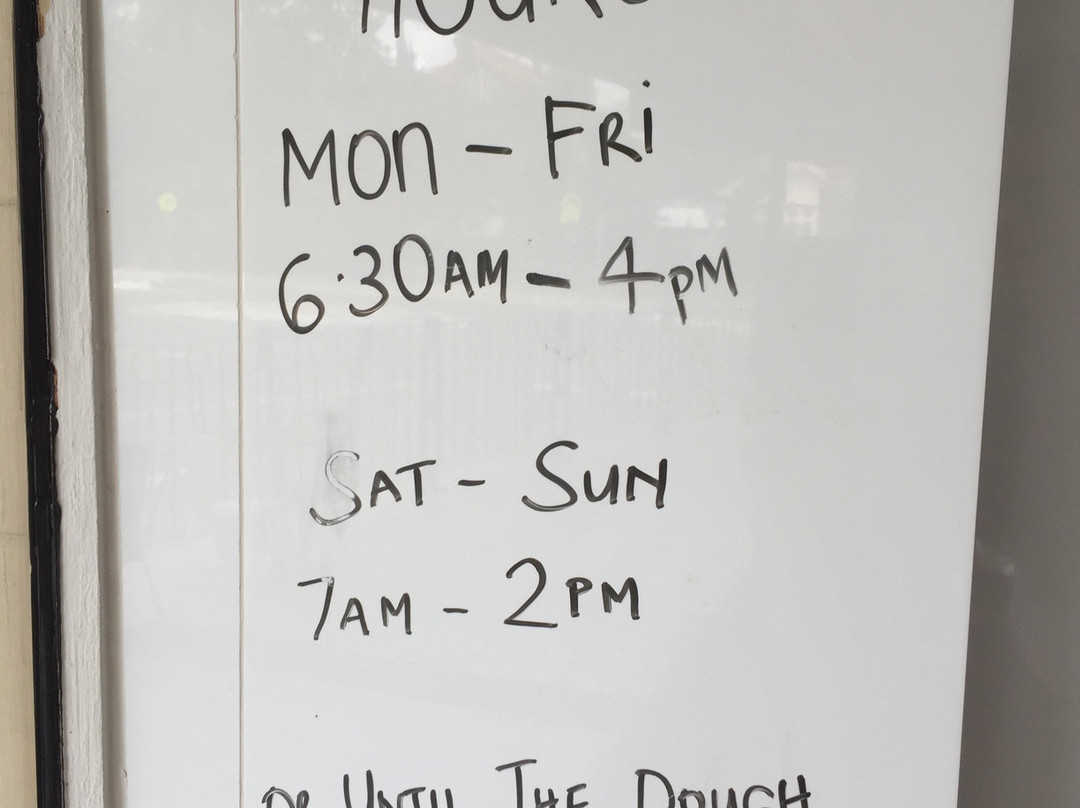 HOURS
MON - FRI
6:30AM - 4PM
SAT - SUN
7AM - 2PM
OR UNTIL THE DOUGH